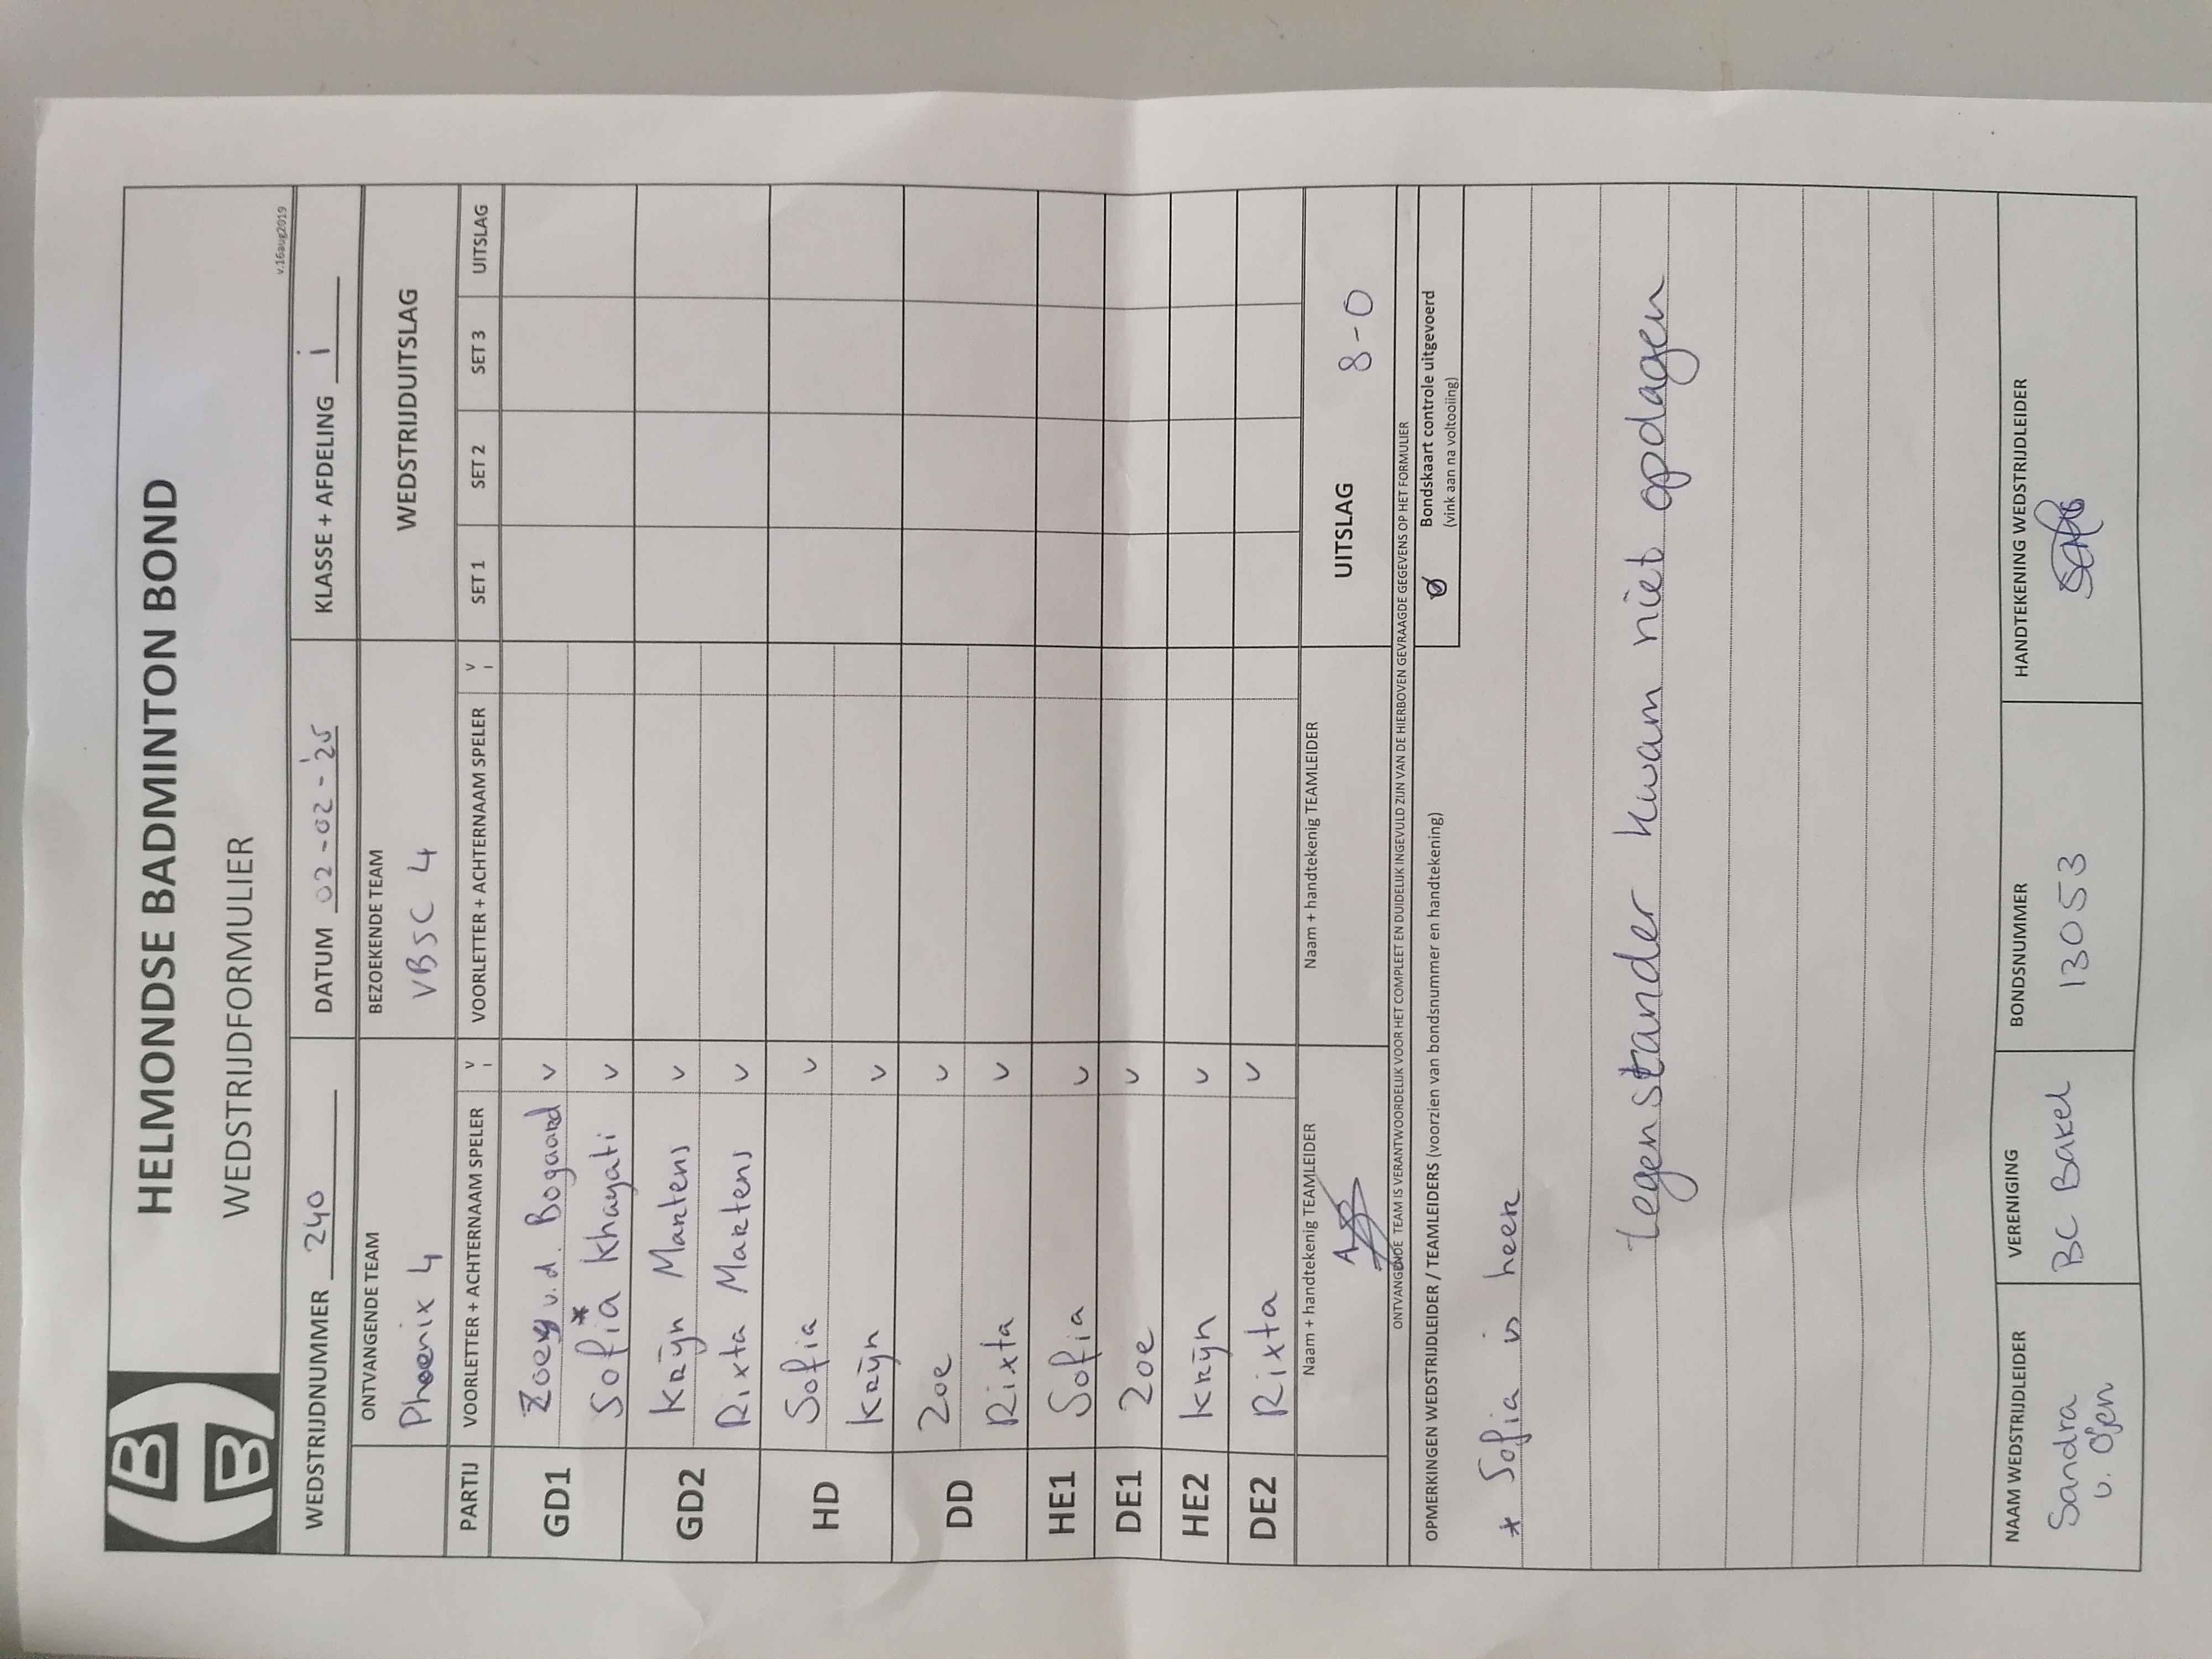 HELMONDSE BADMINTON BOND
WEDSTRIJDFORMULIER
v.16aug2019
WEDSTRIJDNUMMER 240 DATUM 02-02-'25 KLASSE + AFDELING i
ONTVANGENDE TEAM BEZOEKENDE TEAM WEDSTRIJDUITSLAG
Phoenix 4 VBSC 4
PARTIJ VOORLETTER + ACHTERNAAM SPELER V VOORLETTER + ACHTERNAAM SPELER V SET 1 SET 2 SET 3 UITSLAG
GD1 Zoey v.d. Bogaard v
Sofia* Khayati v
GD2 Krijn Martens v
Rixta Martens v
HD Sofia v
Krijn v
DD Zoe v
Rixta v
HE1 Sofia v
DE1 Zoe v
HE2 Krijn v
DE2 Rixta v
Naam + handtekenig TEAMLEIDER Naam + handtekenig TEAMLEIDER UITSLAG 8-0
ONTVANGENDE TEAM IS VERANTWOORDELIJK VOOR HET COMPLEET EN DUIDELIJK INGEVULD ZIJN VAN DE HIERBOVEN GEVRAAGDE GEGEVENS OP HET FORMULIER
OPMERKINGEN WEDSTRIJDLEIDER / TEAMLEIDERS (voorzien van bondsnummer en handtekening)
Bondskaart controle uitgevoerd
(vink aan na voltooiing)
* Sofia is heer
tegenstander kwam niet opdagen
NAAM WEDSTRIJDLEIDER VERENIGING BONDSNUMMER HANDTEKENING WEDSTRIJDLEIDER
Sandra BC Bakel 13053
v.